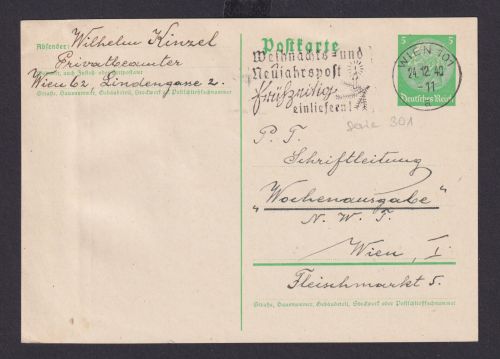 Absender: Wilhelm Kinzel
Privatbeamter
Wien 62, Lindengasse 2.
Straße, Hausnummer, Gebäudeteil, Stockwerk od. Postschließfachnummer
Postkarte
Weihnachts- und
Neujahrspost
frühzeitig
einliefern!
WIEN 101
24.12.40
-11
5 5
Deutsches Reich
Serie 301
P. T.
Schriftleitung
"Wochenausgabe"
N. W. T.
Wien, I
Fleischmarkt 5.
Straße, Hausnummer, Gebäudeteil, Stockwerk oder Postschließfachnummer